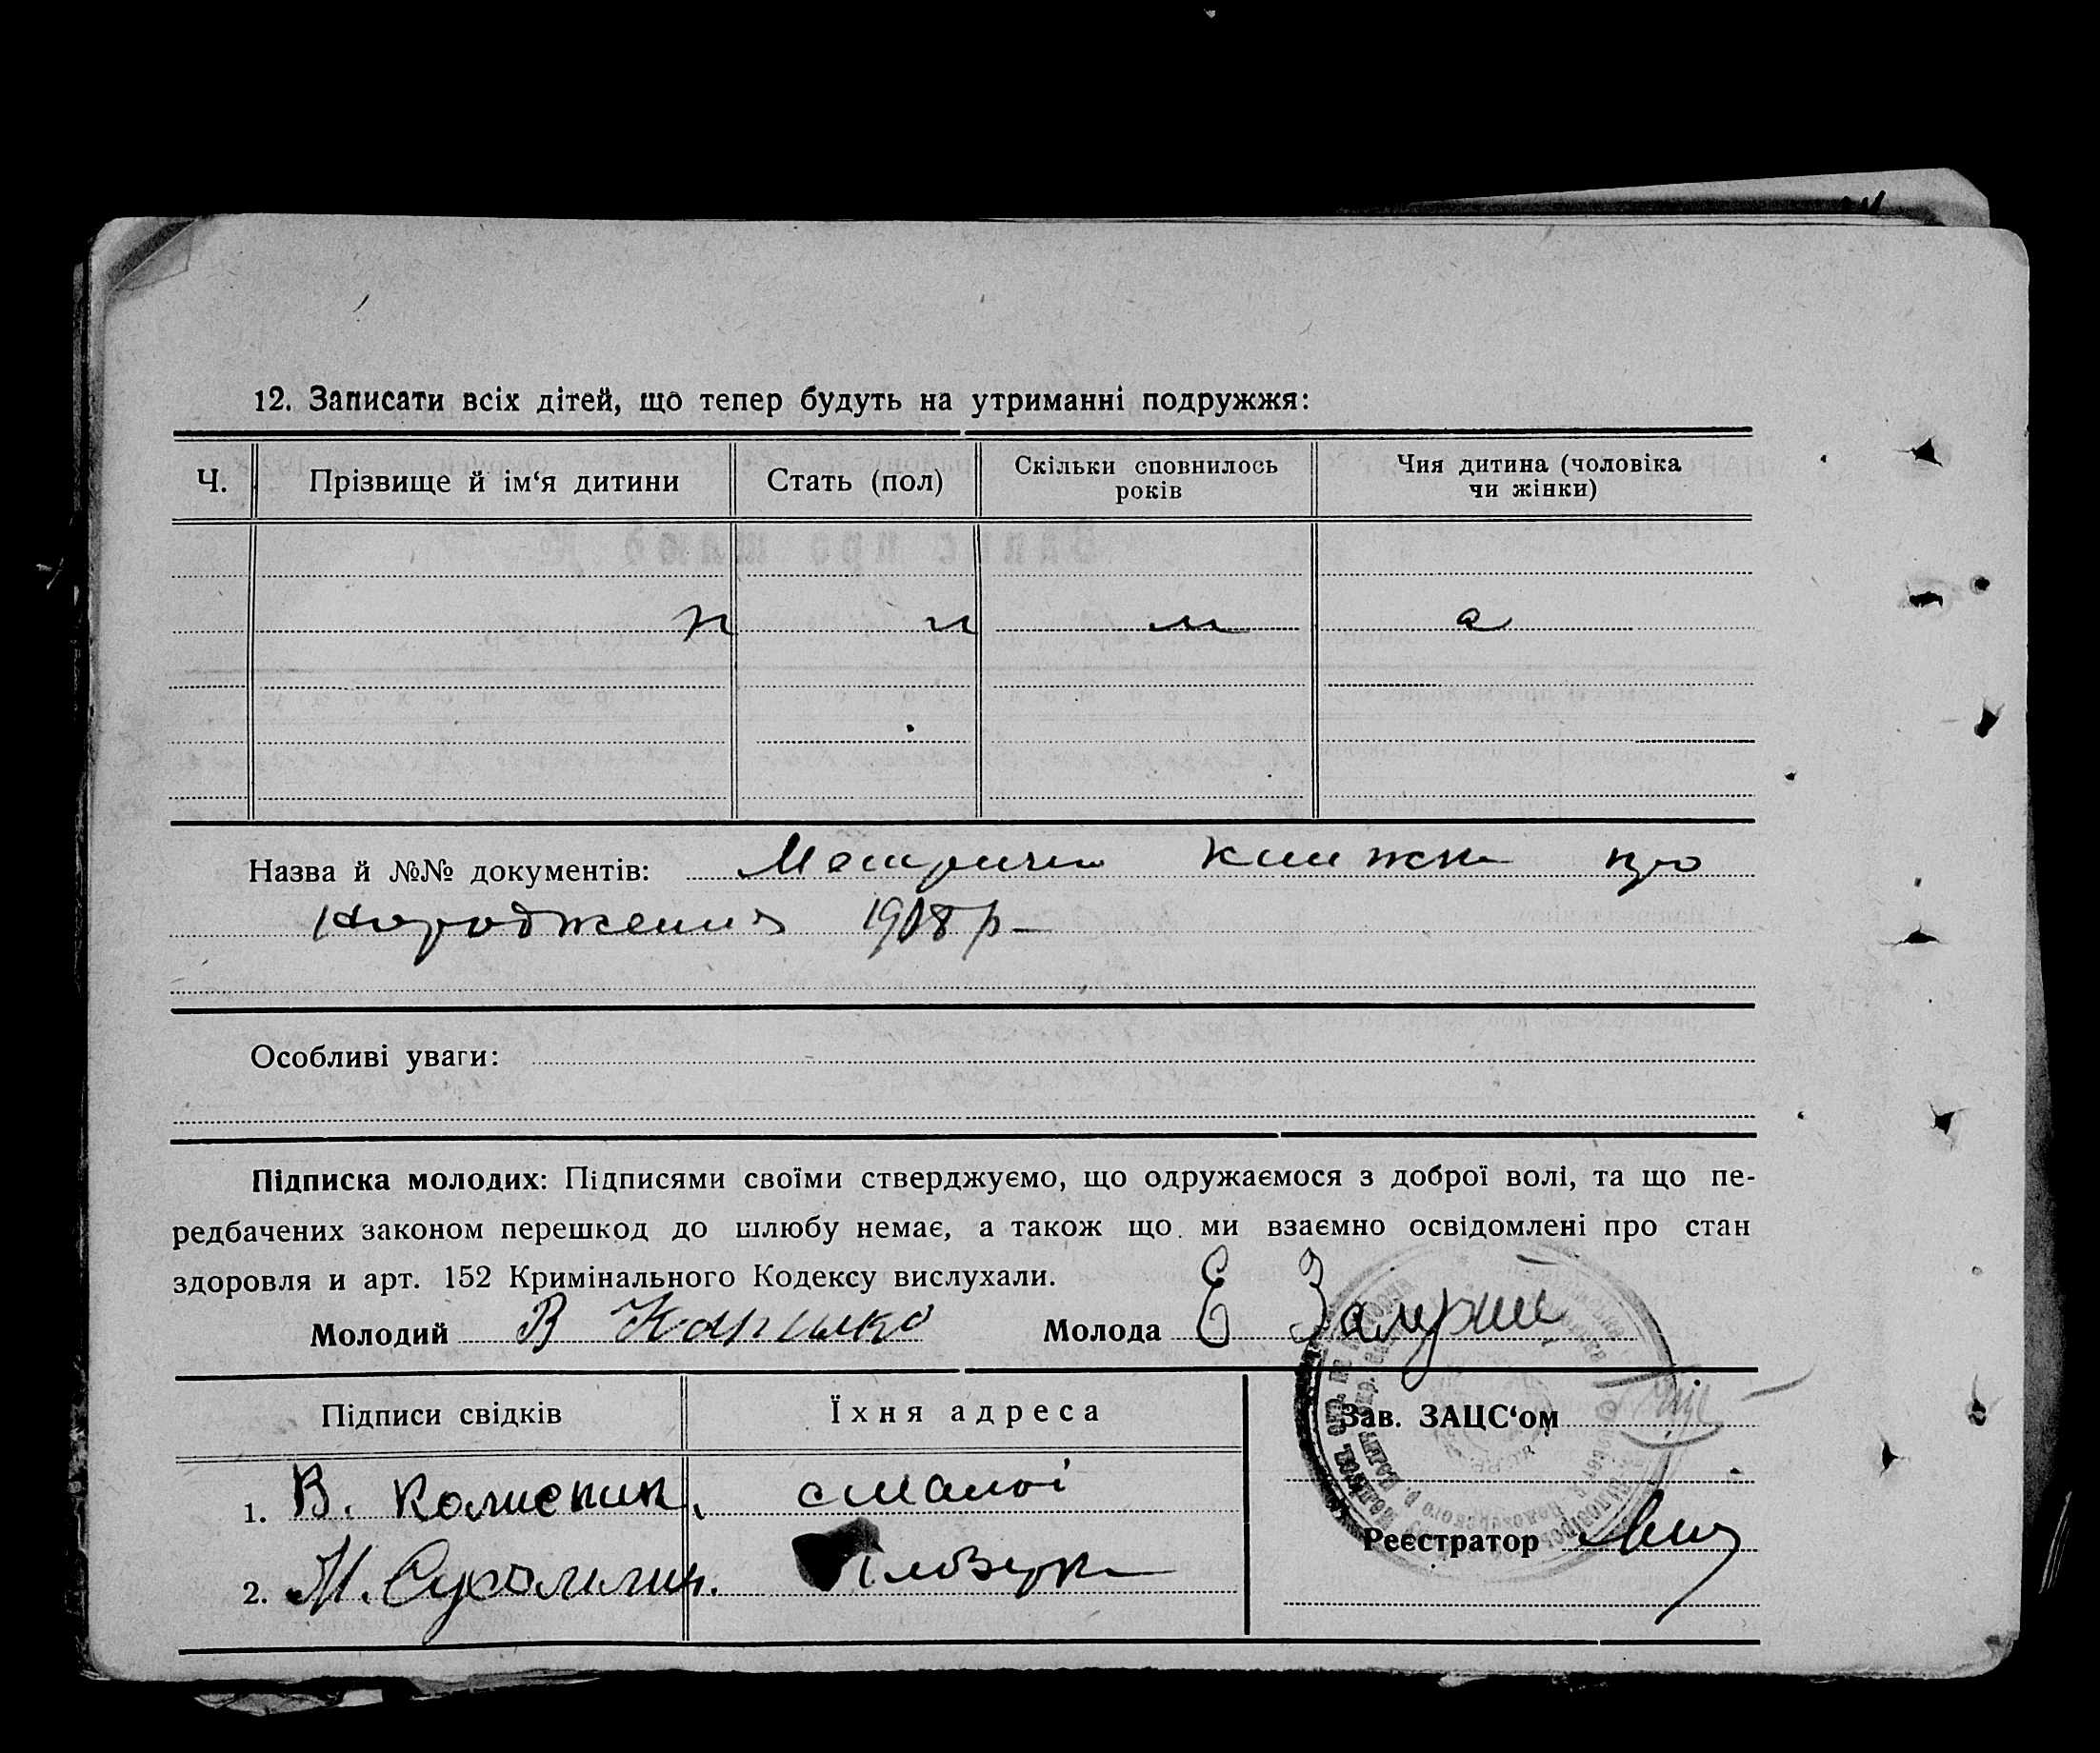 12. Записати всіх дітей, що тепер будуть на утриманні подружжя:
Ч. Прізвище й ім‘я дитини Стать (пол) Скільки сповнилось років Чия дитина (чоловіка чи жінки)
н и м а
Назва й №№ документів: Метричн книжки про
народження 1908 р
Особливі уваги:
Підписка молодих: Підписями своїми стверджуємо, що одружаємося з доброї волі, та що пе-
редбачених законом перешкод до шлюбу немає, а також що ми взаємно освідомлені про стан
здоровля и арт. 152 Кримінального Кодексу вислухали.
Молодий В Молода Е
Підписи свідків Їхня адреса Зав. ЗАЦС‘ом
1. В.
Реєстратор
2. М. Сухомлин.